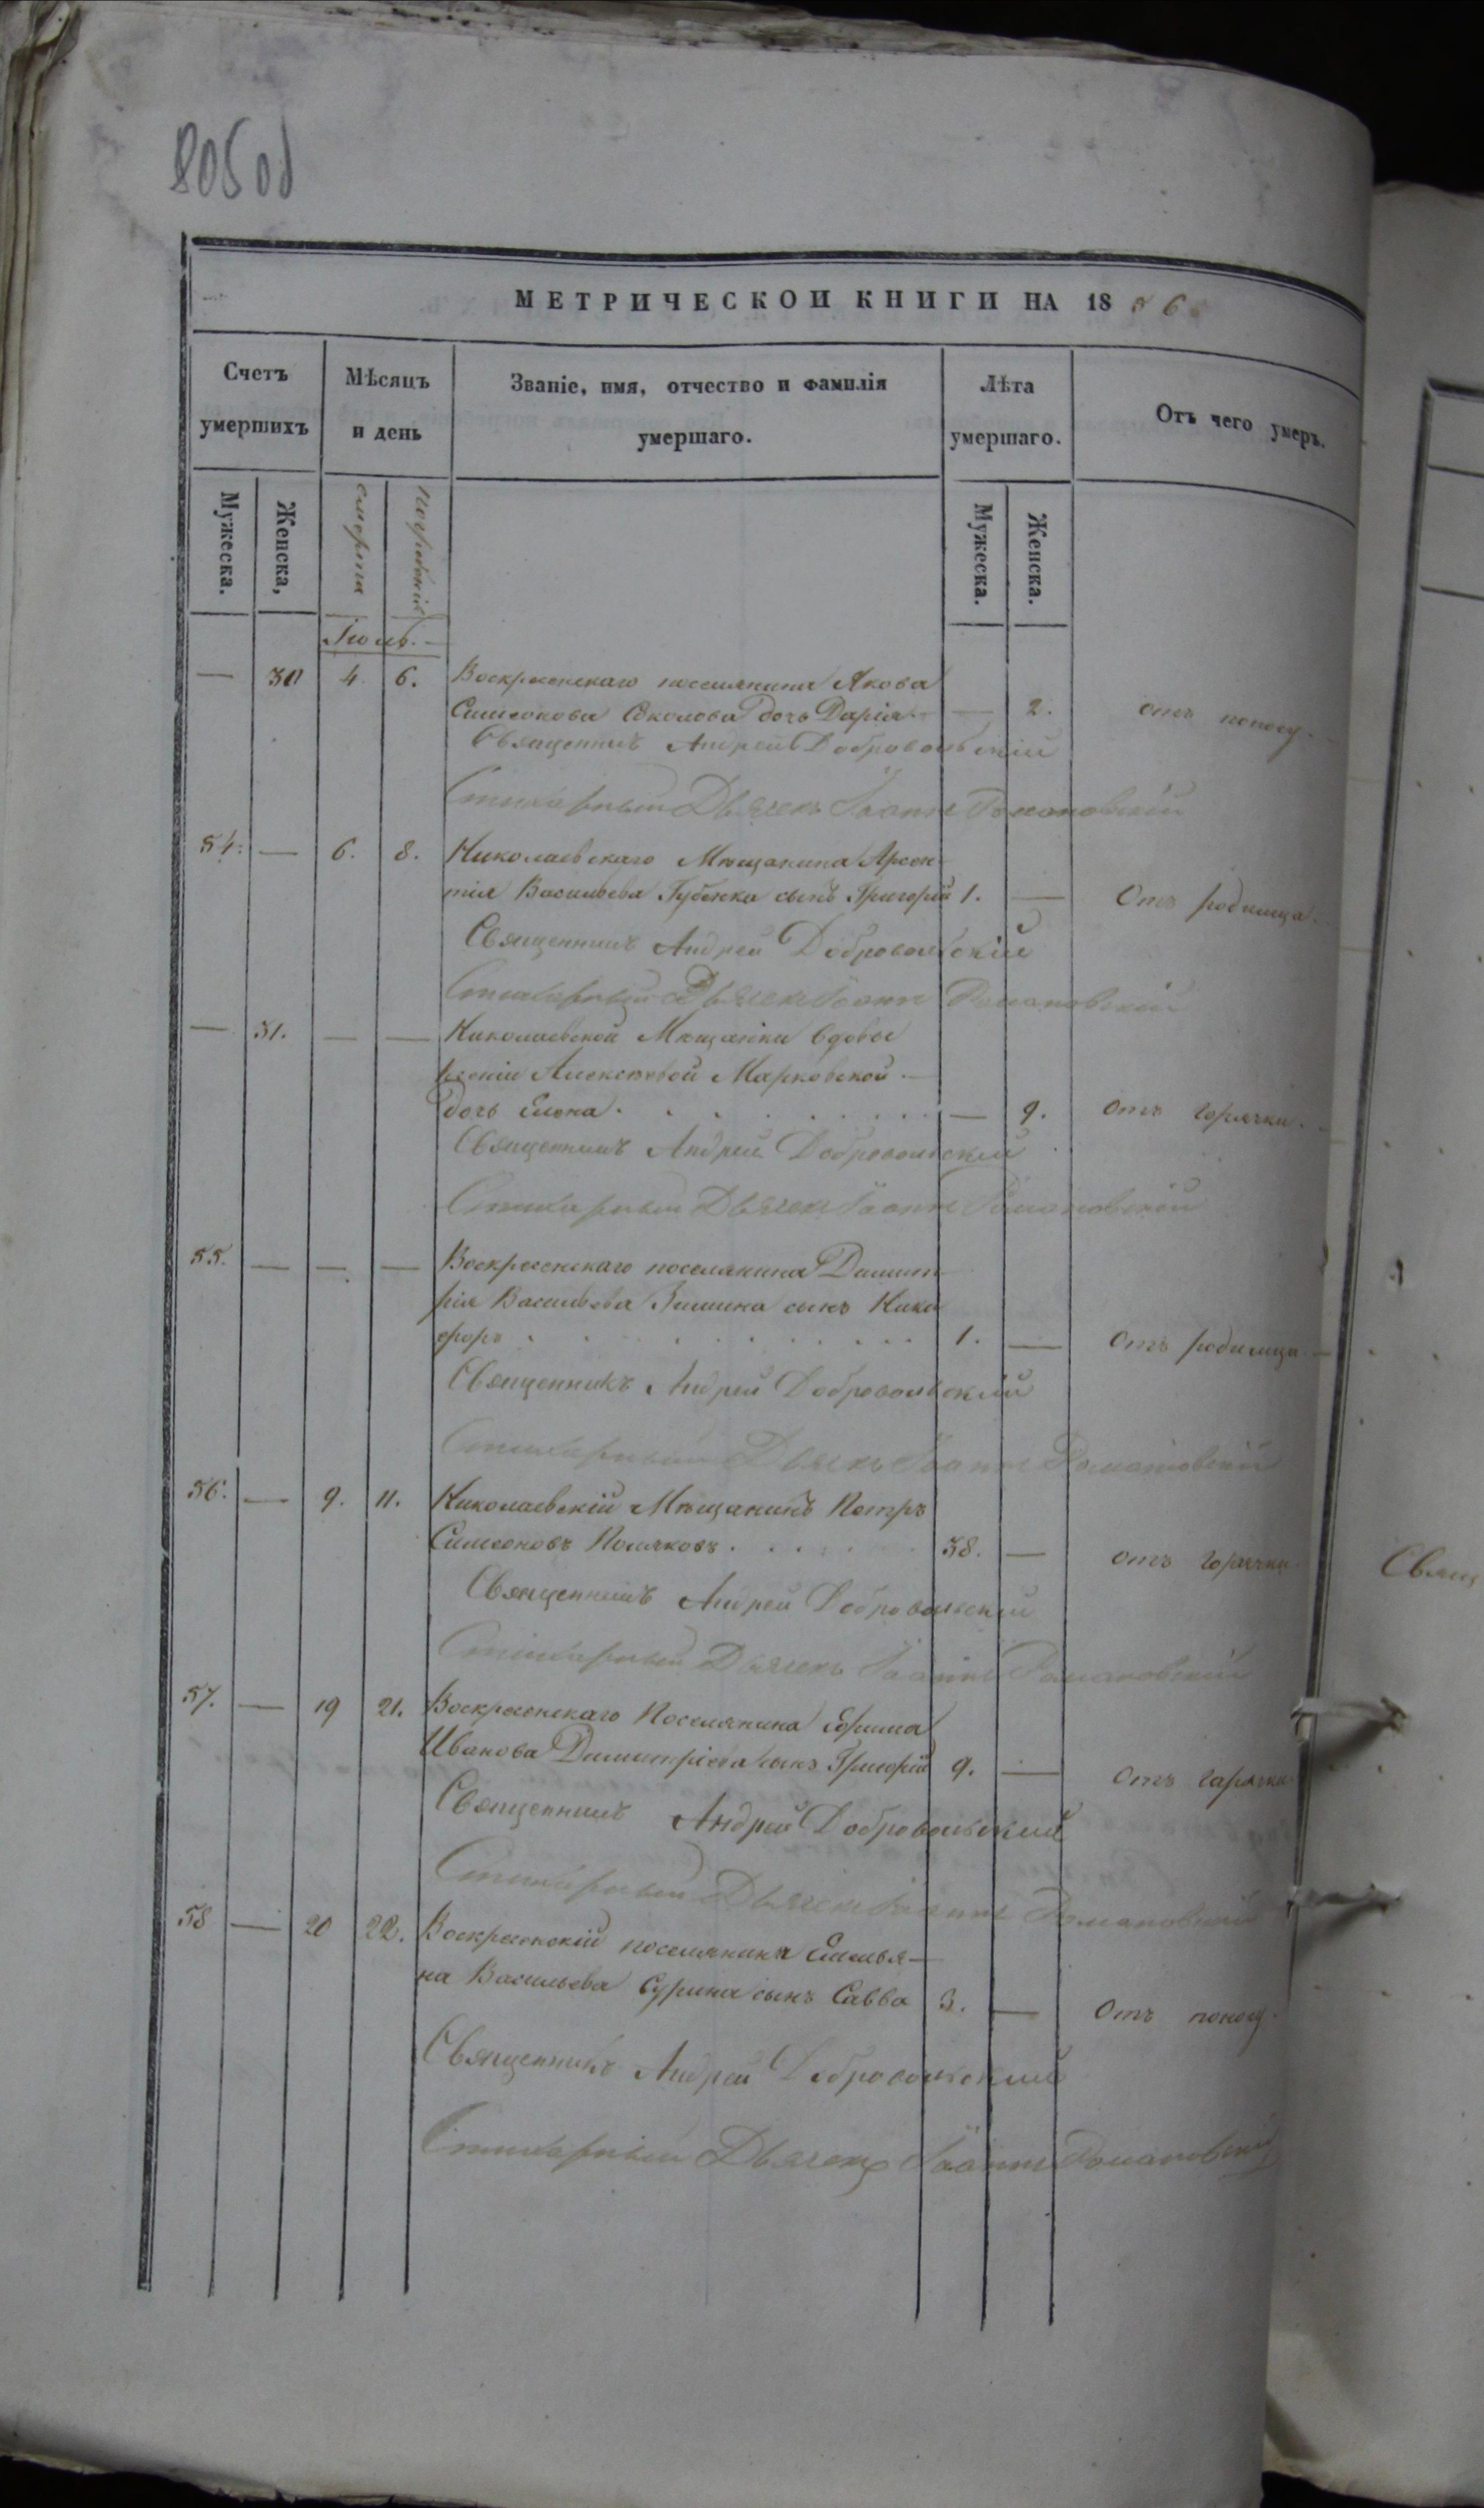 805 об
МЕТРИЧЕСКОЙ КНИГИ НА 1856
Счетъ умершихъ
Мѣсяцъ и день
Званіе, имя, отчество и фамилія умершаго.
Лѣта умершаго.
Отъ чего умеръ.
Мужеска. Женска, смерти погребенія Мужеска. Женска.
Іюль.
— 30 4 6. Воскресенскаго поселянина Якова
Симеонова Соколова дочь Дарія — 2. отъ поносу.
Священникъ Андрей Добровольскій
Стихарный Дьячекъ Іоаннъ Романовскій
54. — 6. 8. Николаевскаго Мѣщанина Арсен-
тія Васильева Губенка сынъ Григорій 1. — Отъ родимца.
Священникъ Андрей Добровольскій
Стихарный Дьячекъ Іоаннъ Романовскій
— 31. — — Николаевской Мѣщанки вдовы
Алексѣевой Марковской
дочь Елена. — 9. отъ горячки.
Священникъ Андрей Добровольскій
Стихарный Дьячекъ Іоаннъ Романовскій
55. — — — Воскресенскаго поселянина Димит-
рія Васильева Зимина сынъ Ники
форъ 1. — Отъ родимца.
Священникъ Андрей Добровольскій
Стихарный Дьячекъ Іоаннъ Романовскій
56. — 9. 11. Николаевскій Мѣщанинъ Петръ
Симеоновъ Поляковъ. 38. — отъ горячки.
Священникъ Андрей Добровольскій
Стихарный Дьячекъ Іоаннъ Романовскій
57. — 19 21. Воскресенскаго Поселянина Ефима
Иванова Димитріева сынъ Григорій 9. — Отъ гарячки
Священникъ Андрей Добровольскій
Стихарный Дьячекъ Іоаннъ Романовскій
58 — 20 22. Воскресенскій поселянина Емелья-
на Васильева Сурина сынъ Савва 3. — Отъ поносу.
Священникъ Андрей Добровольскій
Стихарный Дьячекъ Іоаннъ Романовскій
Свящ